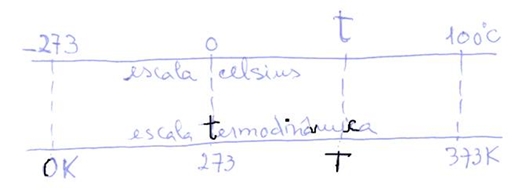 -273 0 t 100°C
escala celsius
escala termodinâmica
0K 273 T 373K